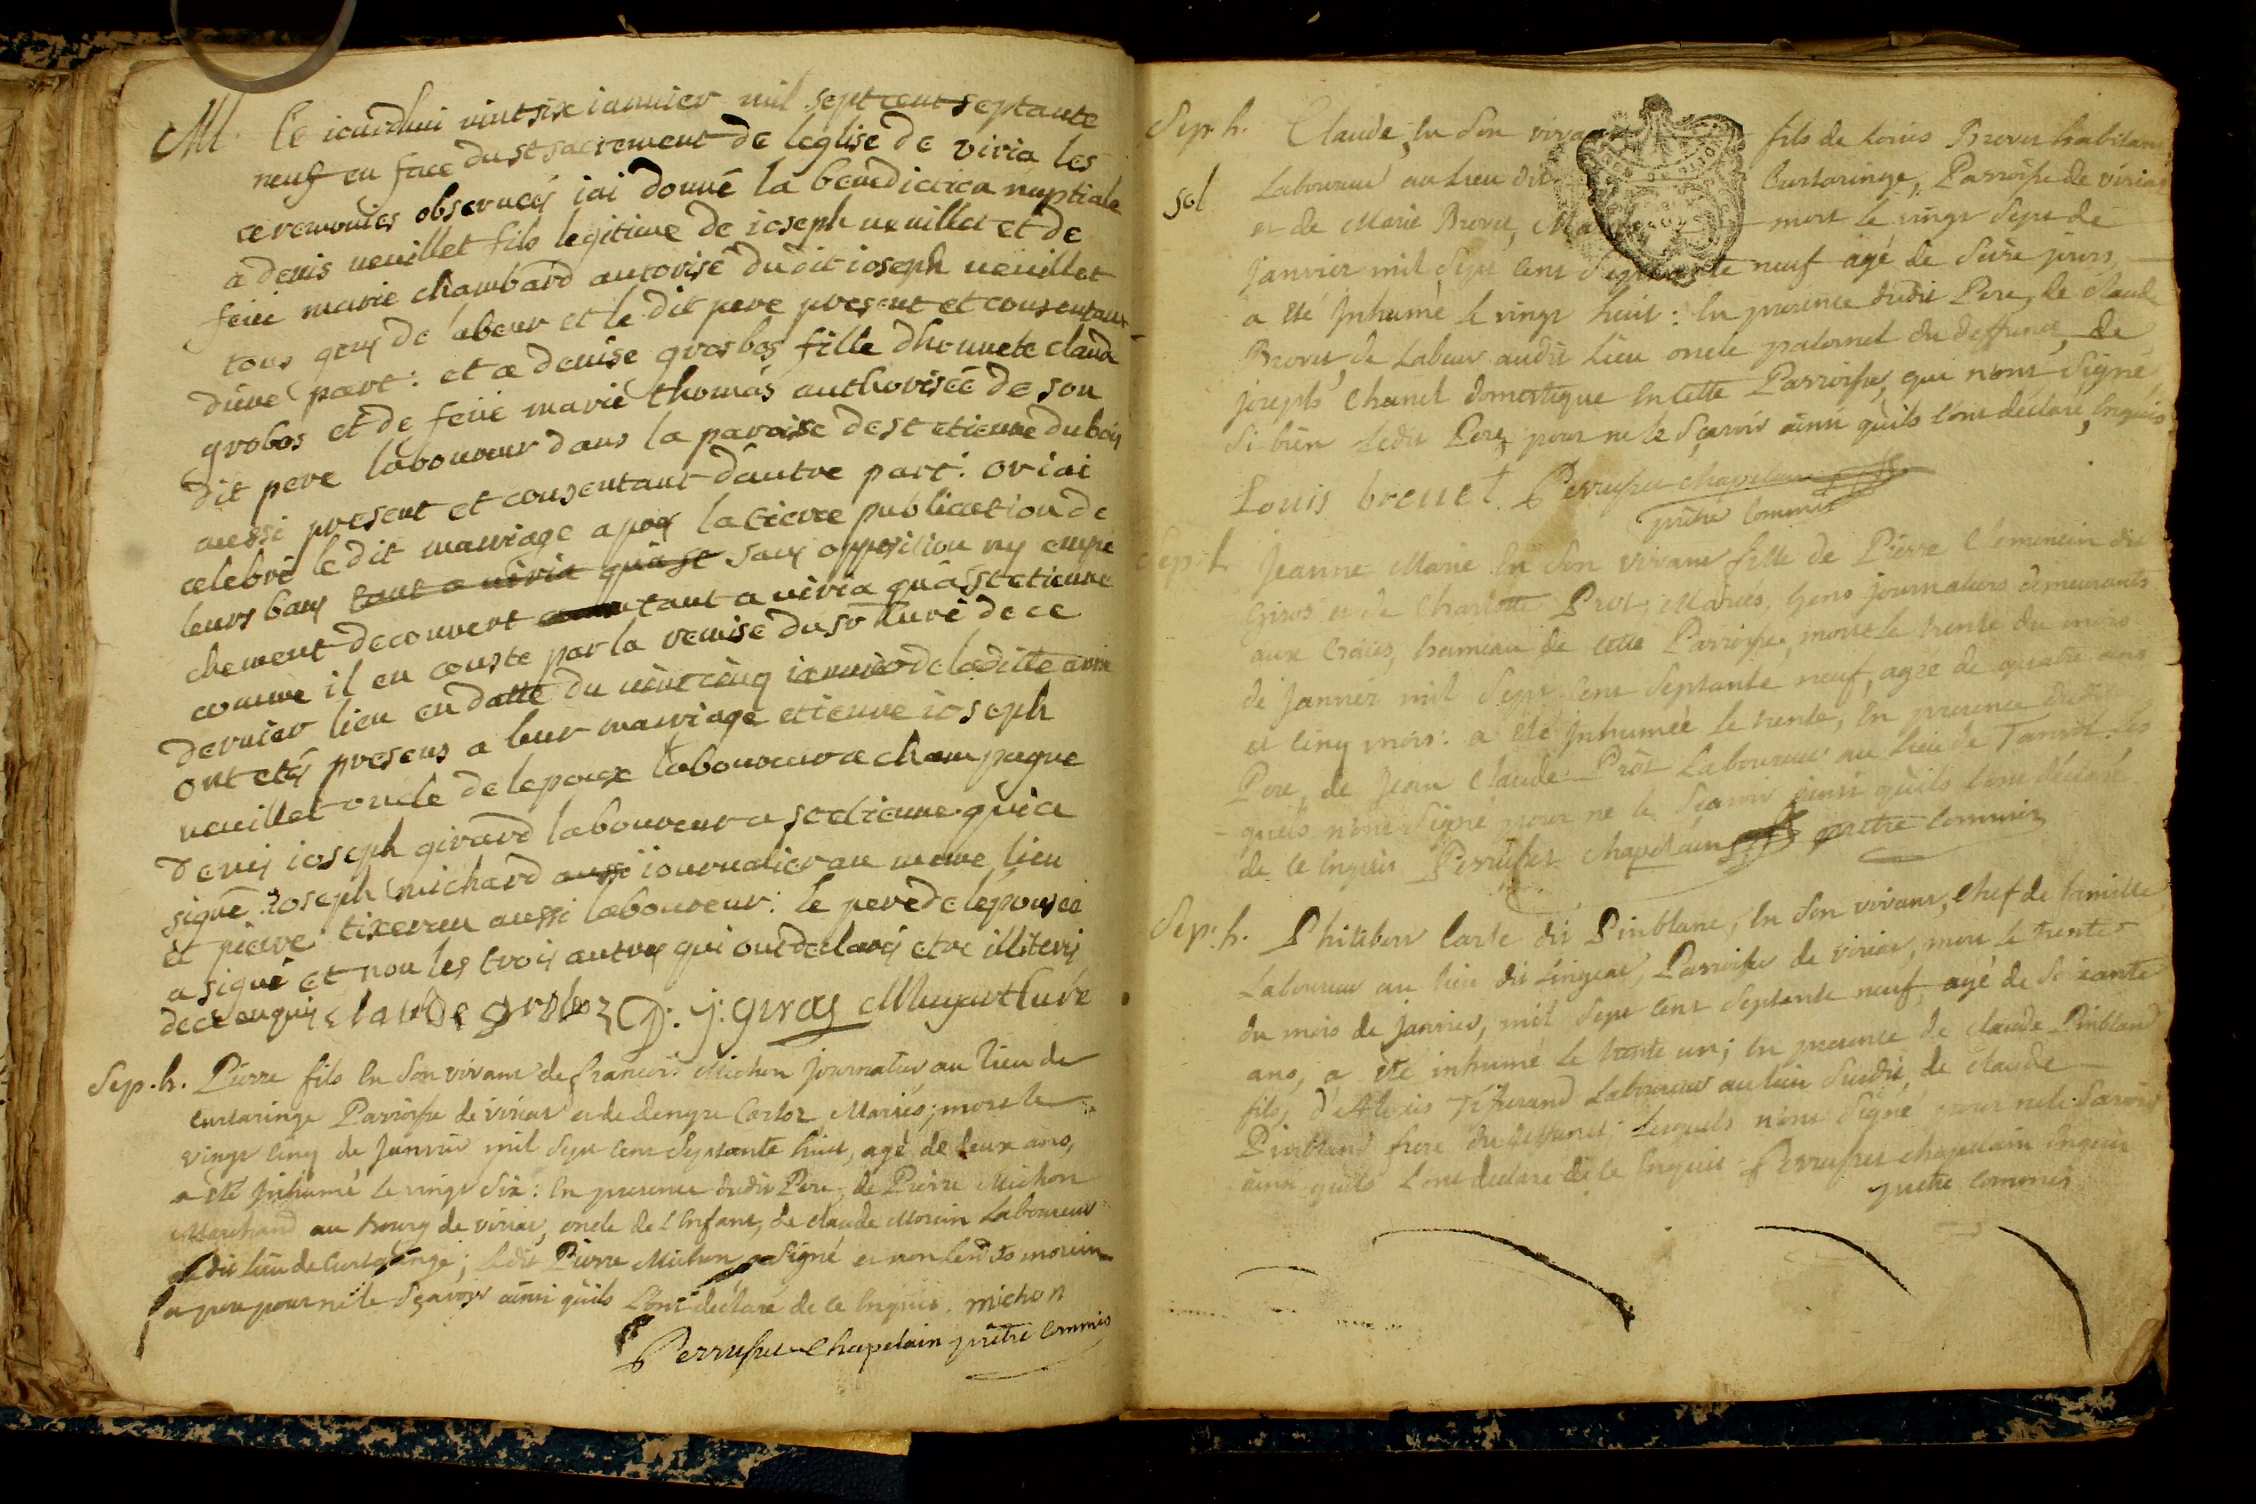 M. Ce iourdhui vint six ianvier mil sept cent septante
neuf en face du st sacrement de leglise de viria les
ceremonies observeés iai donné la benediction nuptiale
a denis veuillet fils legitime de ioseph veuillet et de
feüe marie chambard autorisé dudit ioseph veuillet
tous gens de labeur et le dit pere present et consentant
düne part: et a denise grosbos fille dhonnete claude
grobos et de feüe marie thomas authorisée de son
dit pere laboureur dans la paroisse de st etienne du bois
aussi present et consentant dautre part: or iai
celebré le dit mariage apres la tierce publication de
leurs bans tant a viria qua st sans opposition ny empe
chement decouvert tant a viria qua st etienne
comme il en conste par la remise du sr Curé de ce
dernier lieu en datte du vint cinq ianvier de laditte année
ont etés presens a leur mariage etienne ioseph
veuillet oncle de lepoux laboureur a champagne
denis ioseph girard laboureur a st etienne qui a
signé ioseph michard aussi iournalier au meme lieu
et pierre tixeren aussi laboureur: le pere de lépouseé
a signé et non les trois autres qui ont declarés etre illiterés
de ce enquis claude groboz D: j: giras Muyart Curé
Sep.h. Pierre fils En Son vivant de francois Michon Journalier au lieu de
Curtaringe Parroisse de viriat et de denyse Carloz Mariés; mort le
vingt Cinq de Janvier mil Sept Cent Septante huit, agé de deux ans,
a eté Inhumé le vingt Six: En presence dudit Pere, de Pierre Michon
Marchand au Bourg de viriat, oncle de l'Enfant, de claude Morin Laboureur
au dit lieu de Curtaringe; Ledit Pierre Michon a Signé et non lesdits morin
pere pour ne le Sçavoir ainsi qu'ils L'ont déclaré de ce Enquis. michon
Perruset Chapelain prêtre Commis
Sep. h. Claude, En Son vivant fils de Loüis Brevet habitant
sol Laboureur au Lieu dit Curtaringe, Parroisse de viriat
et de Marie Brevet, mort le vingt Sept de
Janvier mil Sept Cent Septante neuf agé de Seize jours,
a eté Inhumé le vingt huit: En presence dudit Pere, de claude
Brevet de Labeur audit Lieu oncle paternel du deffunct, de
joseph Chanel domestique En cette Parroisse, qui n'ont Signé
Si bien Ledit Pere, pour ne le Sçavoir ainsi qu'ils L'ont déclaré, Enquis
Louis brenet. Perruset chapelain
prêtre Commis
Sep. h. Jeanne Marie En Son vivant fille de Pierre Clemencin dit
Giros et de Charlotte Prot, Mariés, Gens journaliers demeurants
aux Crâis, hameau de cette Parroisse, morte le trente du mois
de Janvier mil Sept Cent Septante neuf, agée de quatre ans
et Cinq mois: a eté Inhumée le trente, En presence dudit
Pere, de Jean Claude Prôt Laboureur au Lieu de Tanvol. Les
quels n'ont Signé pour ne le Sçavoir ainsi qu'ils l'ont déclaré
de ce Enquis Perruset Chapelain prêtre Commis
Sep. h. Philibert Carle dit Pinblanc, En Son vivant, Chef de famille
Laboureur au lieu dit Lingeat, Parroisse de viriat, mort le trente
du mois de Janvier, mil Sept Cent Septante neuf, agé de Soixante
ans, a eté inhumé le trente un; En presence de claude Pinblanc
fils, d'Alexis Tisserand Laboureur au lieu Susdit, de claude
Pinblanc frere du deffunct. Lesquels n'ont Signé pour ne le Savoir
ainsi qu'ils L'ont declaré de ce Enquis. Perruset chapelain Enquis
prêtre Commis